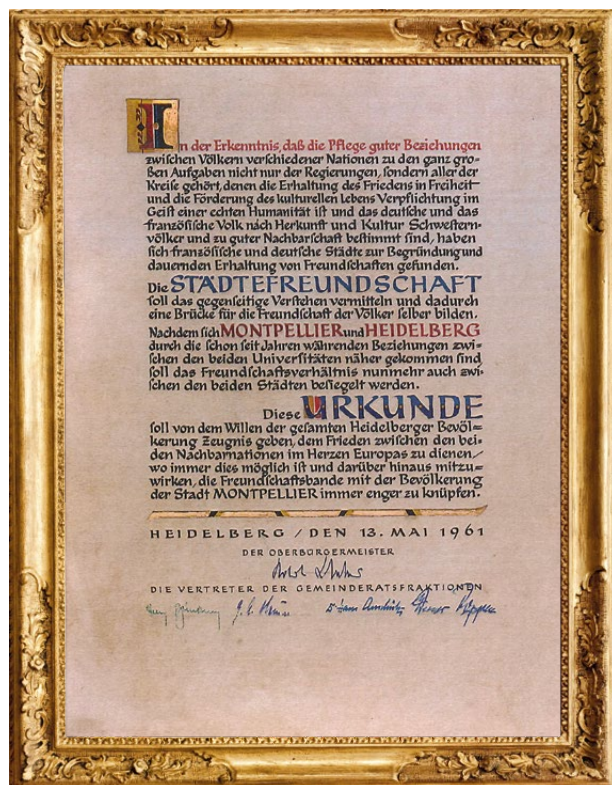 In der Erkenntnis, daß die Pflege guter Beziehungen
zwischen Völkern verschiedener Nationen zu den ganz gro-
ßen Aufgaben nicht nur der Regierungen, sondern aller der
Kreise gehört, denen die Erhaltung des Friedens in Freiheit
und die Förderung des kulturellen Lebens Verpflichtung im
Geist einer echten Humanität ist und das deutsche und das
französische Volk nach Herkunft und Kultur Schwestern-
völker und zu guter Nachbarschaft bestimmt sind, haben
sich französische und deutsche Städte zur Begründung und
dauernden Erhaltung von Freundschaften gefunden.
Die STÄDTEFREUNDSCHAFT
soll das gegenseitige Verstehen vermitteln und dadurch
eine Brücke für die Freundschaft der Völker selber bilden.
Nachdem sich MONTPELLIER und HEIDELBERG
durch die schon seit Jahren währenden Beziehungen zwi-
schen den beiden Universitäten näher gekommen sind
soll das Freundschaftsverhältnis nunmehr auch zwi-
schen den beiden Städten besiegelt werden.
Diese URKUNDE
soll von dem Willen der gesamten Heidelberger Bevöl=
kerung Zeugnis geben, dem Frieden zwischen den bei-
den Nachbarnationen im Herzen Europas zu dienen/
wo immer dies möglich ist und darüber hinaus mitzu=
wirken, die Freundschaftsbande mit der Bevölkerung
der Stadt MONTPELLIER immer enger zu knüpfen.
HEIDELBERG / DEN 13. MAI 1961
DER OBERBÜRGERMEISTER
DIE VERTRETER DER GEMEINDERATSFRAKTIONEN